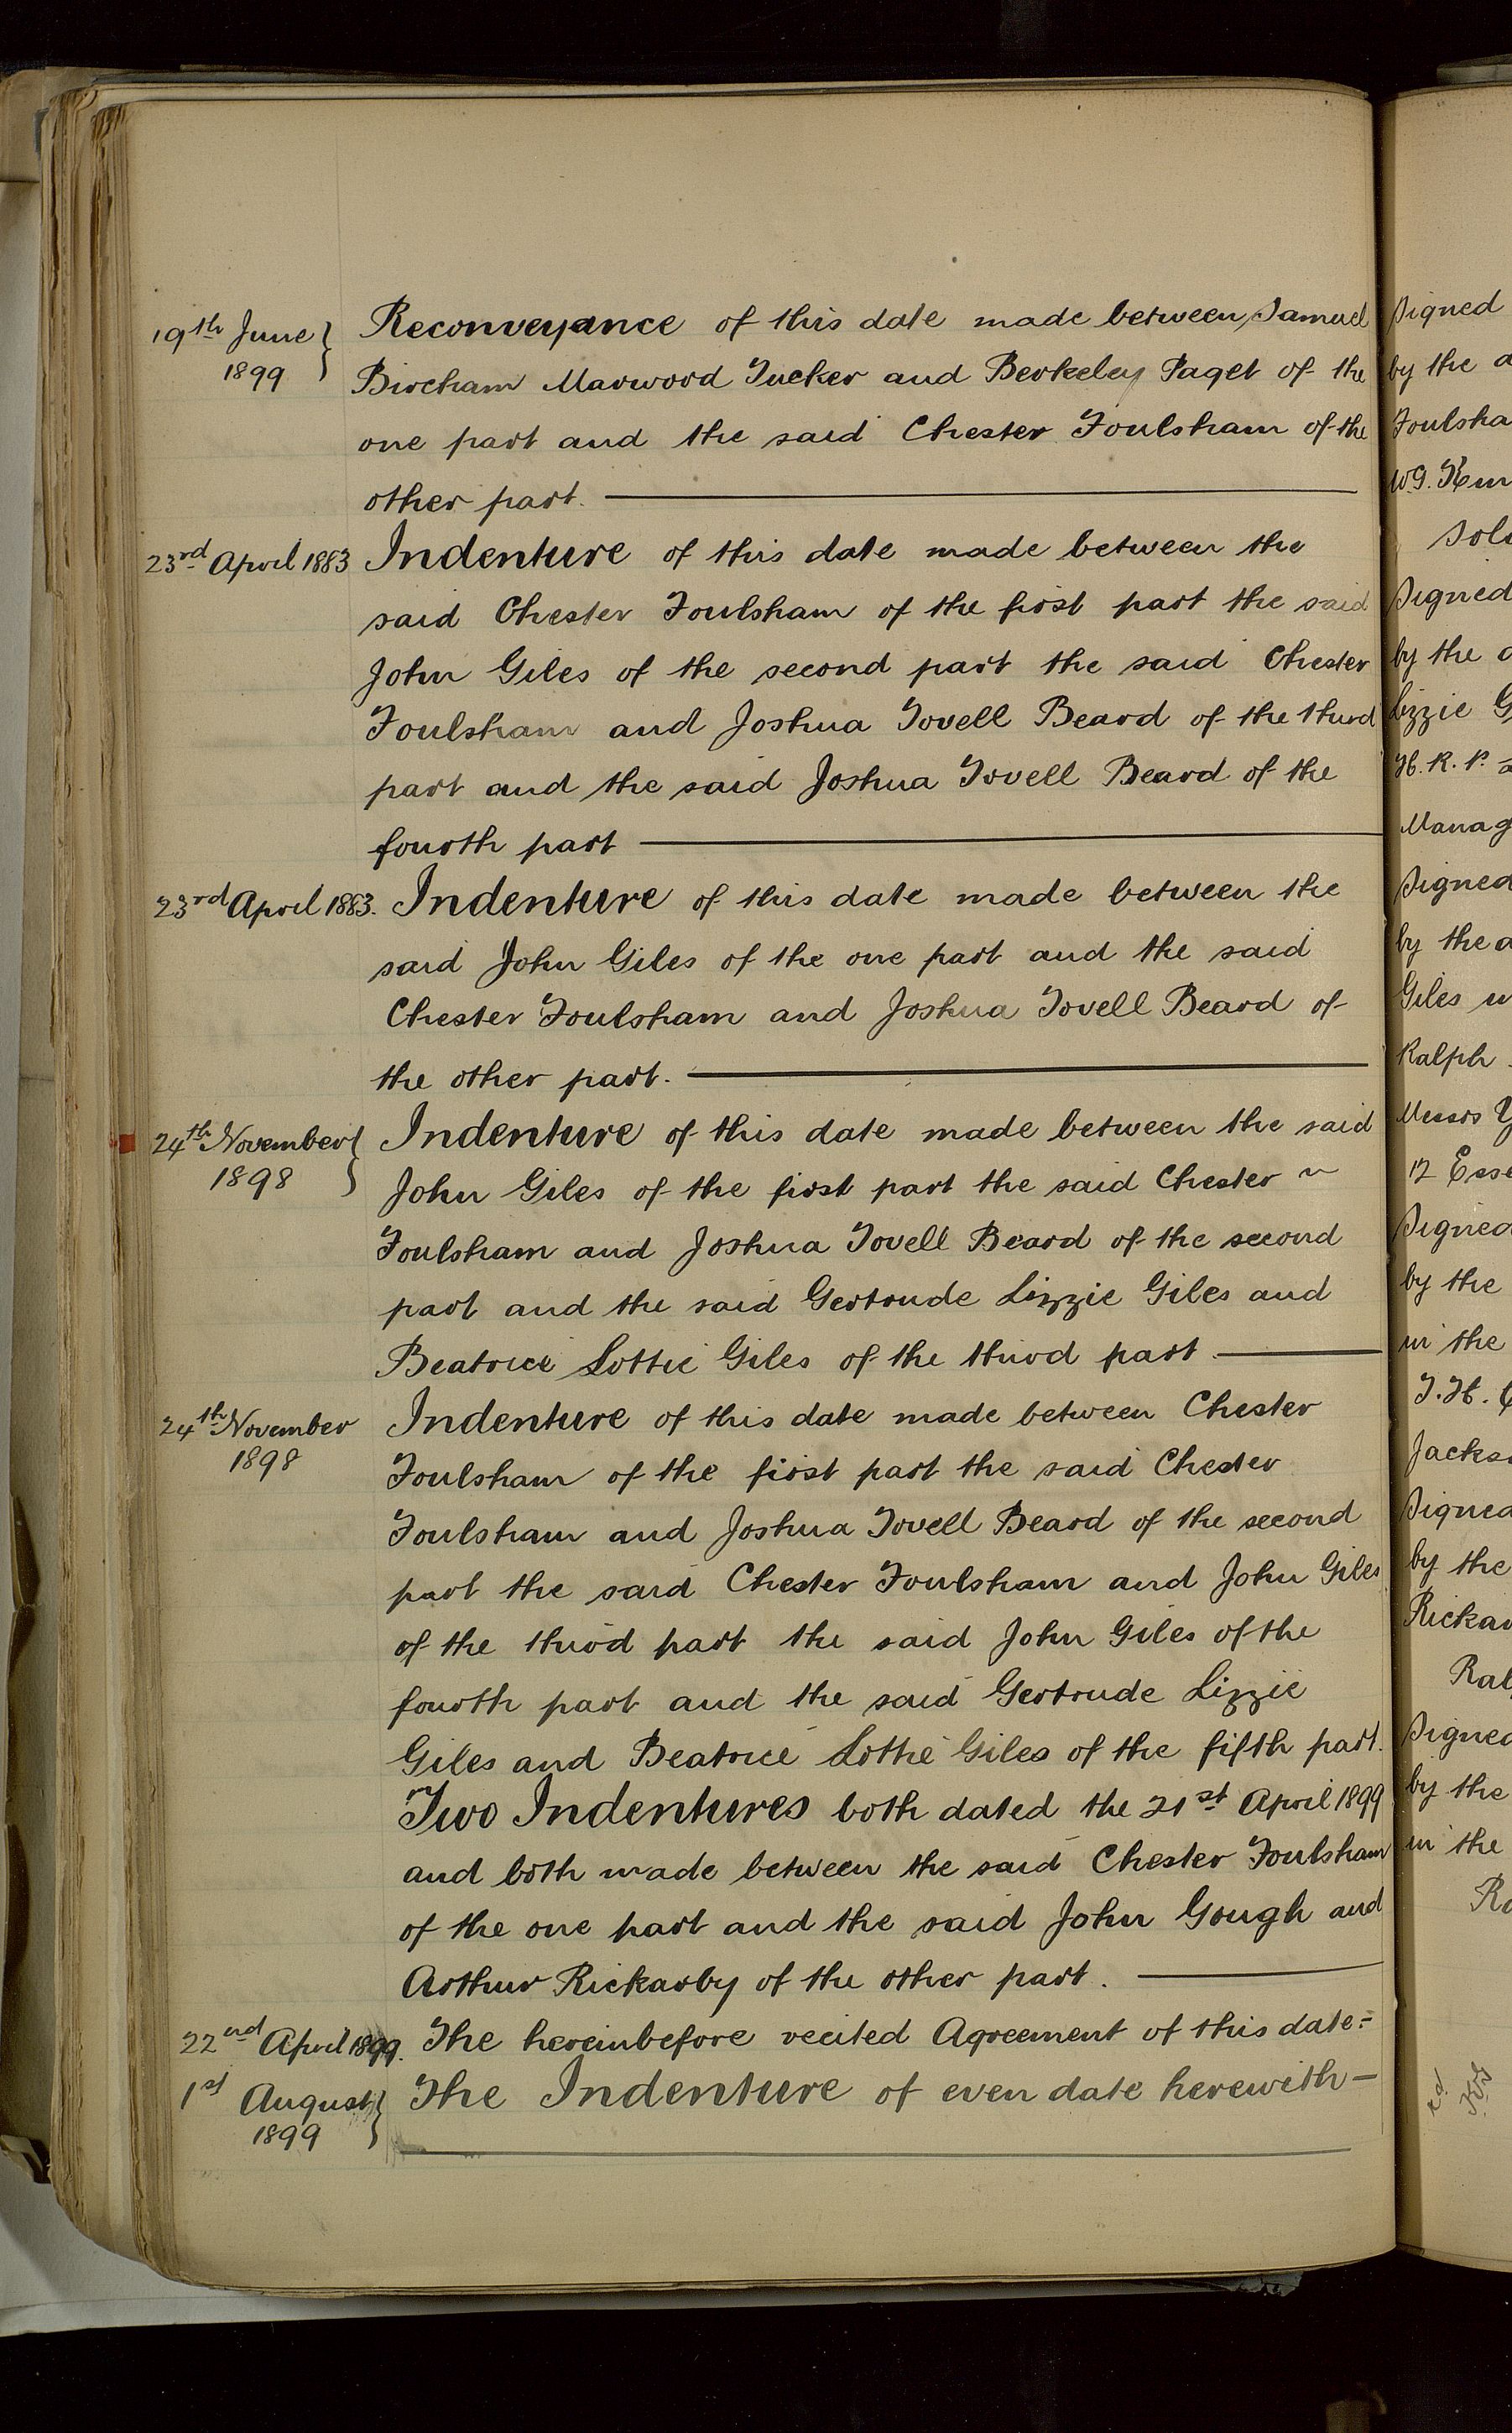 19th June } Reconveyance of this date made between Samuel
1899 Bircham Marwood Tucker and Berkeley Paget of the
one part and the said Chester Foulsham of the
other part.
23rd April 1883 Indenture of this date made between the
said Chester Foulsham of the first part the said
John Giles of the second part the said Chester
Foulsham and Joshua Tovell Beard of the third
part and the said Joshua Tovell Beard of the
fourth part
23rd April 1883. Indenture of this date made between the
said John Giles of the one part and the said
Chester Foulsham and Joshua Tovell Beard of
the other part.
24th November } Indenture of this date made between the said
1898 John Giles of the first part the said Chester
Foulsham and Joshua Tovell Beard of the second
part and the said Gertrude Lizzie Giles and
Beatrice Lottie Giles of the third part
24th November Indenture of this date made between Chester
1898 Foulsham of the first part the said Chester
Foulsham and Joshua Tovell Beard of the second
part the said Chester Foulsham and John Giles
of the third part the said John Giles of the
fourth part and the said Gertrude Lizzie
Giles and Beatrice Lottie Giles of the fifth part.
Two Indentures both dated the 21st April 1899
and both made between the said Chester Foulsham
of the one part and the said John Gough and
Arthur Rickarby of the other part.
22nd April 1899. The hereinbefore recited Agreement of this date.
1st August } The Indenture of even date herewith
1899
Signed
by the
Foulsha
W.G.
Signed
by the
Lizzie G
H. R. P.
Manag
Signed
by the a
Giles
Ralph
Messrs
12 Esse
Signed
by the
in the
T. H.
Jacks
Signed
by the
Rickar
Ral
Signed
by the
in the